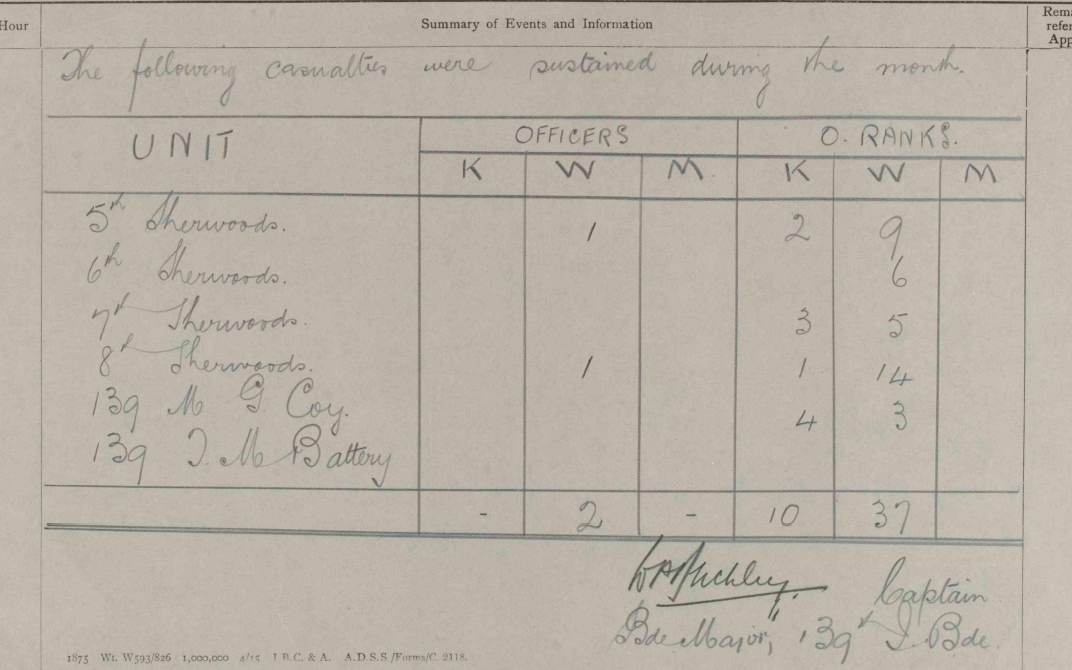 Hour Summary of Events and Information Rema
refer
App
The following casualties were sustained during the month.
UNIT OFFICERS O. RANKS.
K W M. K W M
5th Sherwoods. 1 2 9
6th Sherwoods. 6
7th Sherwoods. 3 5
8th Sherwoods. 1 1 14
139 M G Coy. 4 3
139 T. M Battery
- 2 - 10 37
Captain
Bde Major, 139th I. Bde.
1875 Wt. W593/826 1,000,000 4/15 J.B.C. & A. A.D.S.S./Forms/C. 2118.